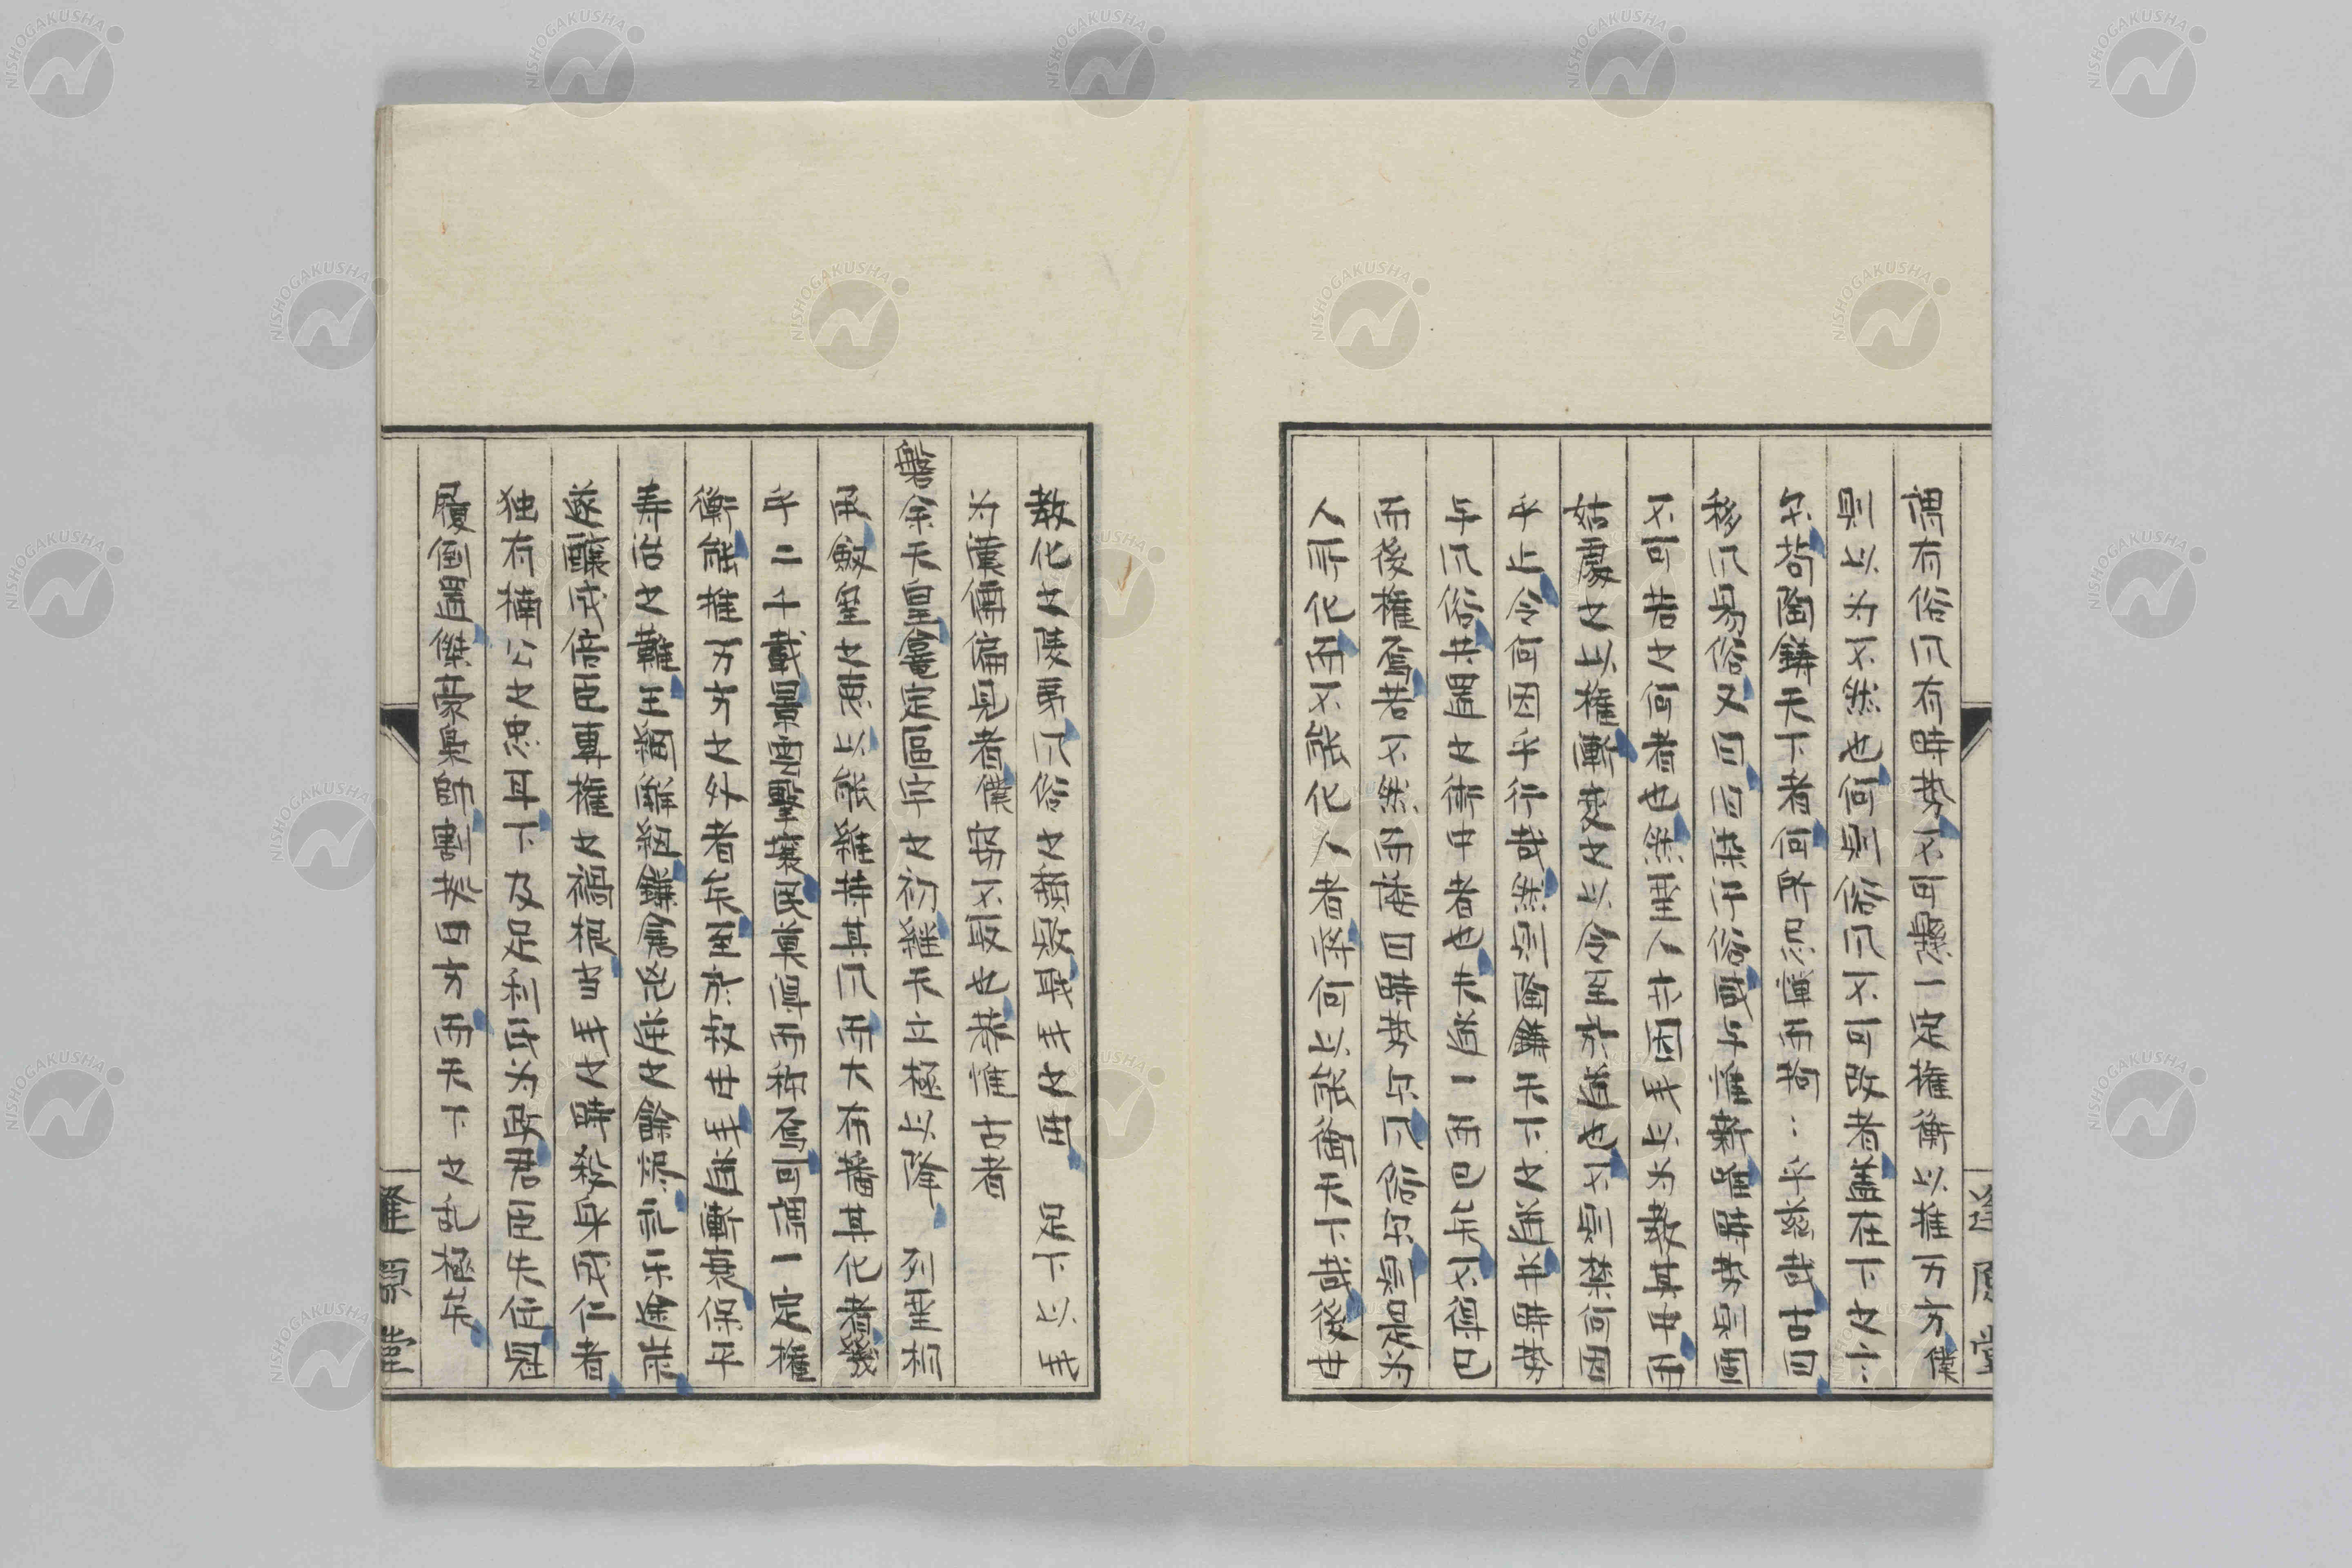 謂有俗凡有時勢不可懸一定権衡以推万方僕
則以为不然也何則俗凡不可改者蓋在下之云
尓苟陶鋳天下者何所忌憚而拘〻乎茲哉古曰
移凡易俗又曰旧染汙俗咸与惟新唯時勢則固
不可若之何者也然聖人亦因民以为教其毋用
姑慮之以権漸变之以令至於道也不則禁何因
乎止令何因乎行哉然則陶鎔天下之道并時勢
与凡俗共置之術中者也夫道一而已矣不得已
而後権焉若不然而諉曰時勢尓凡俗尓則是为
人所化而不能化人者将何以能衡天下哉後世
教化之陵夷凡俗之頽敗職民之由 足下以民
为漢儒偏見者僕窃不取也恭惟古者
磐余天皇奄定區宇之初継天立極以降 列聖相
承叙聖之東以能維持其凡而大有藩其化者幾
乎二千載暑雨墾壌民莫得而称焉可謂一定権
衡能推万方之外者矣至於叔世民道漸衰保平
寿治之難王綱解紐鎌倉兇逆之餘誤北示途矣
遂釀成倍臣専権之禍根当民之時殺身成仁者
独有楠公之忠耳下及足利氏为政君臣失位冠
履倒置傑豪梟帥割拠四方而天下之乱極矣
逢原堂
逢原堂
NISHOGAKUSHA